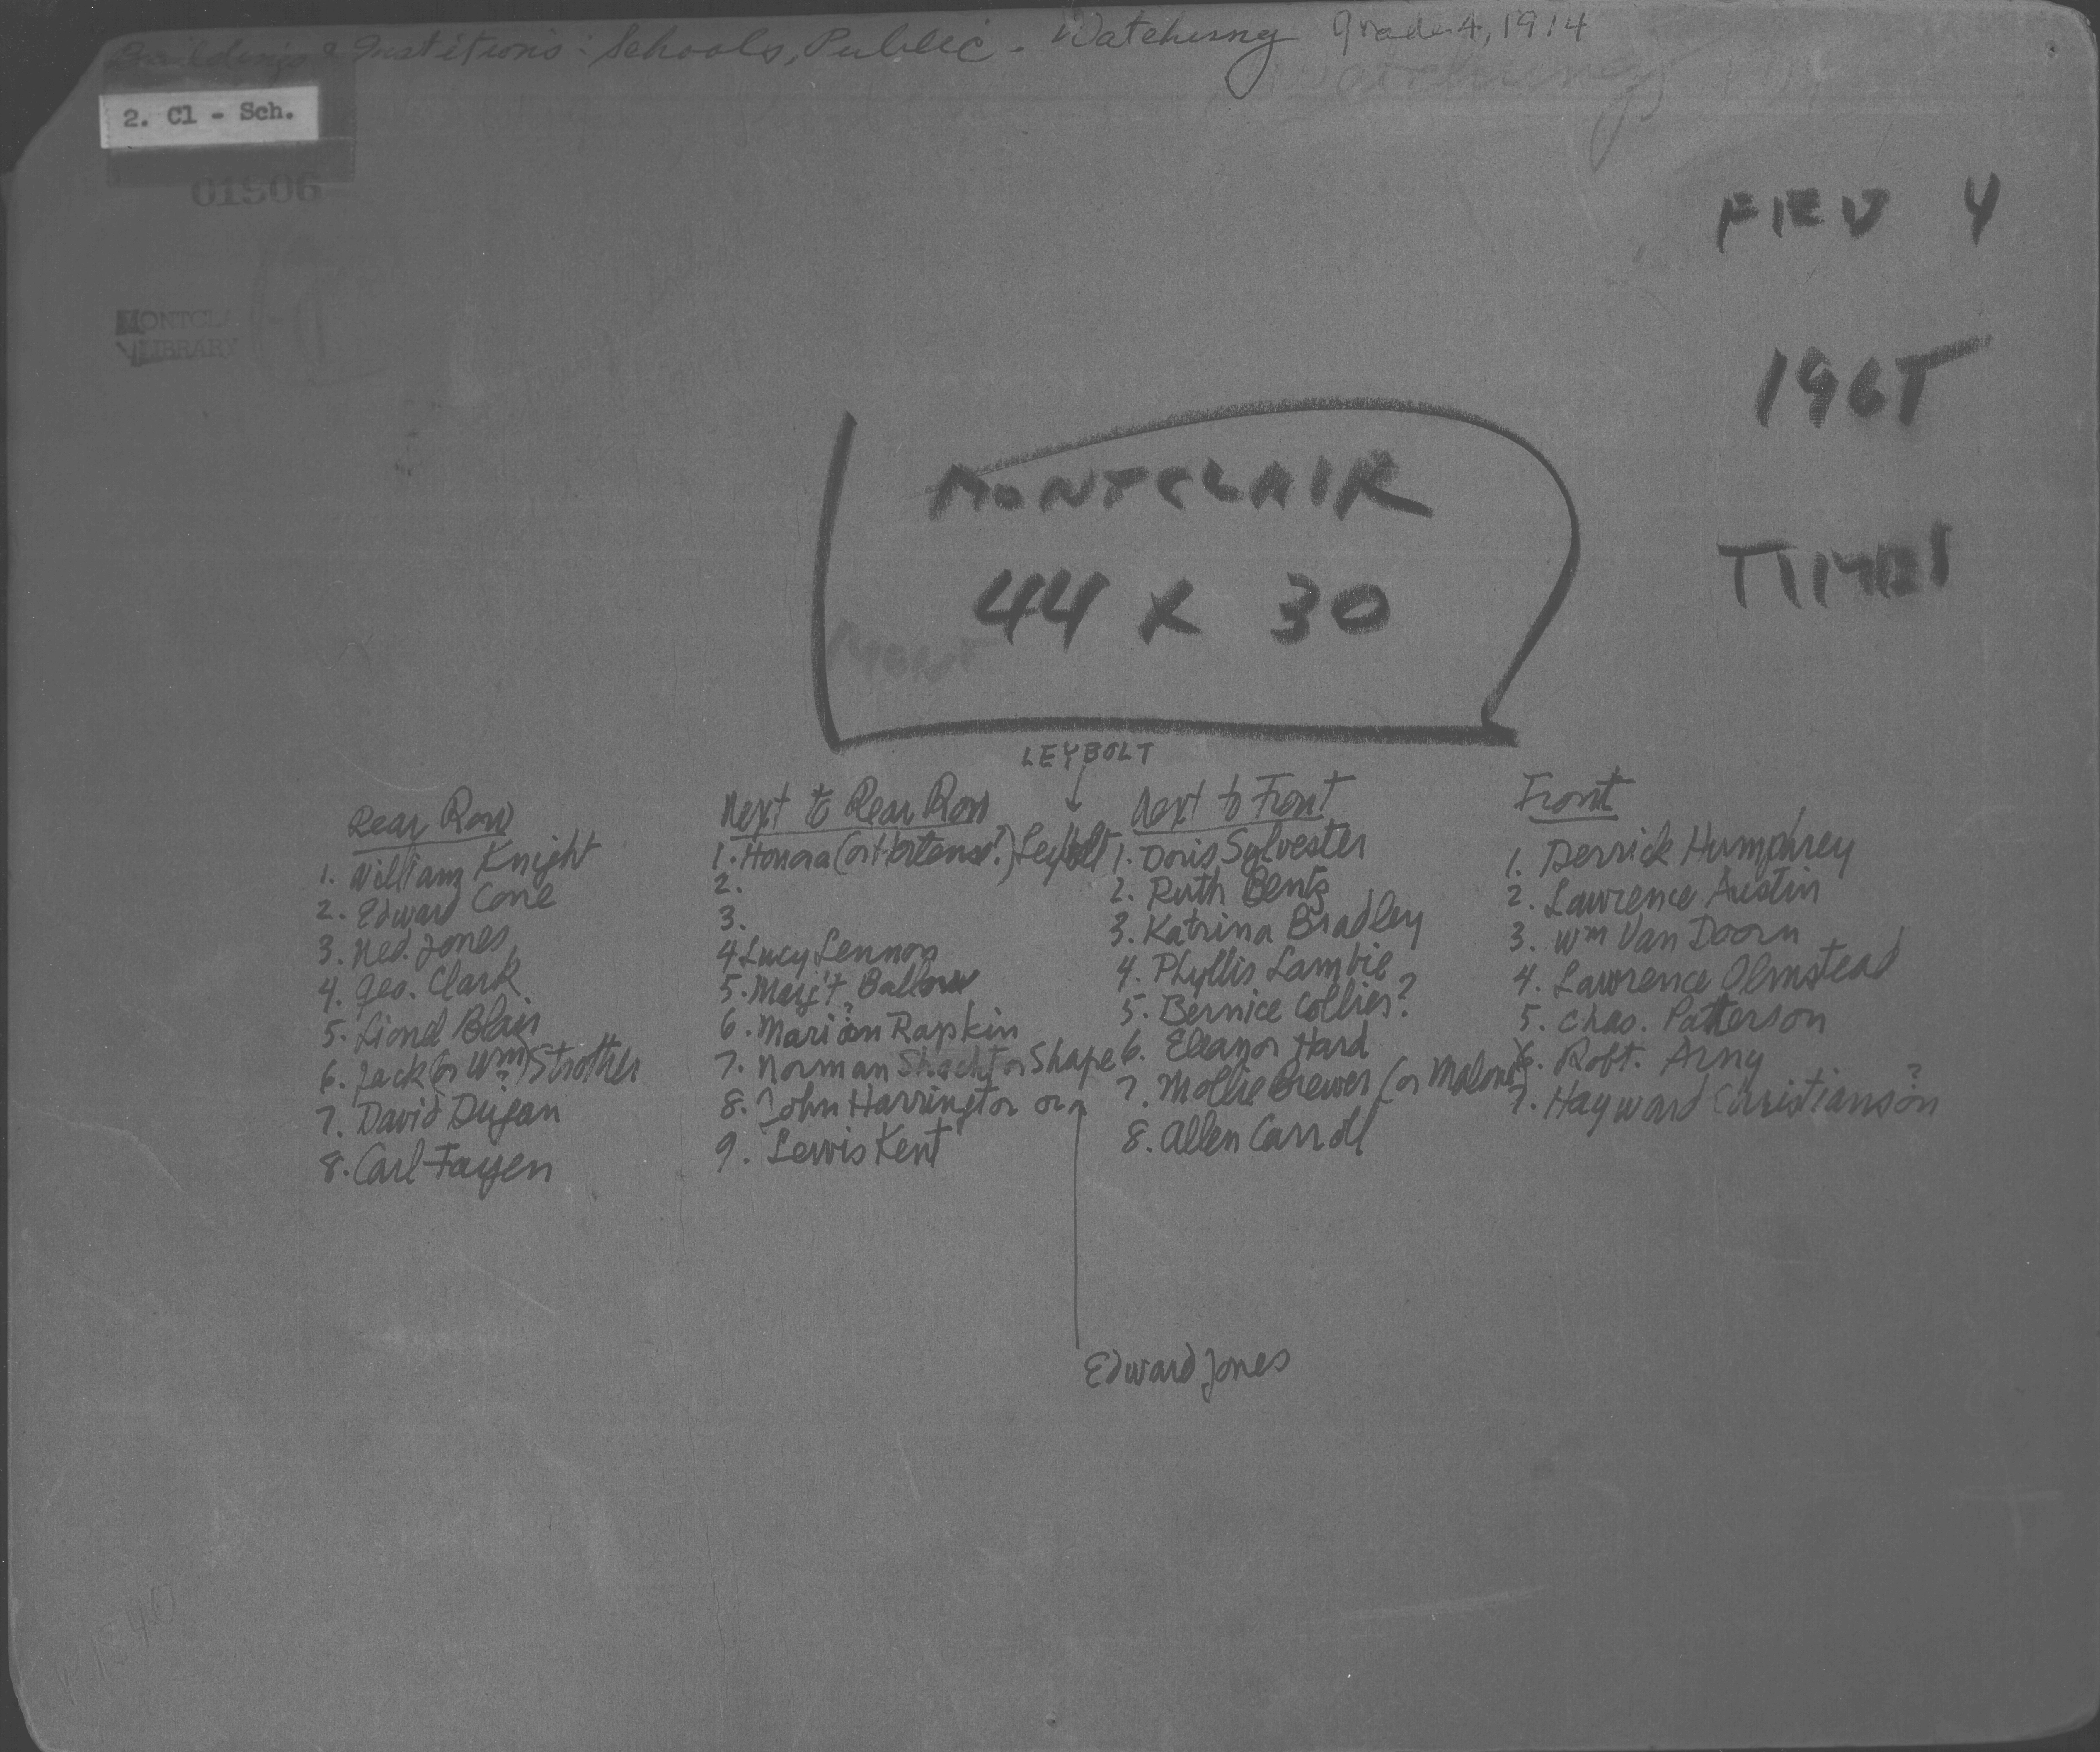 Buildings & Institions: Schools, Public - Watchung Grade 4, 1914
Watchung
2. Cl - Sch.
01506
MONTCLA
LIBRARY
4
TIMES
MONTCLAIR
44 X 30
MONT
LEYBOLT
Rear Row
1. William Knight
2. Edward Cone
3. Ned. Jones
4. Geo. Clark
5. Lionel Blair
6. Jack (or Wm?) Strother
7. David Dugan
8. Carl Fayen
Next to Rear Row
1. Honora (or Hortense?) Leybolt
2.
3.
4 Lucy Lennox
5. Marj't Ballou
6. Marion Rapkin
7. Norman Shacht or Shape
8. John Harrington or
9. Lewis Kent
Edward Jones
Next to Front
1. Doris Sylvester
2. Ruth Bentz
3. Katrina Bradley
4. Phyllis Lambie
5. Bernice Collies?
6. Eleanor Hard
7. Mollie Brewer (or Malone)
8. Allen Carroll
Front
1. Derrick Humphrey
2. Lawrence Austin
3. Wm Van Doorn
4. Lawrence Olmstead
5. Chas. Patterson
6. Robt. Arny
7. Hayward Christianson?